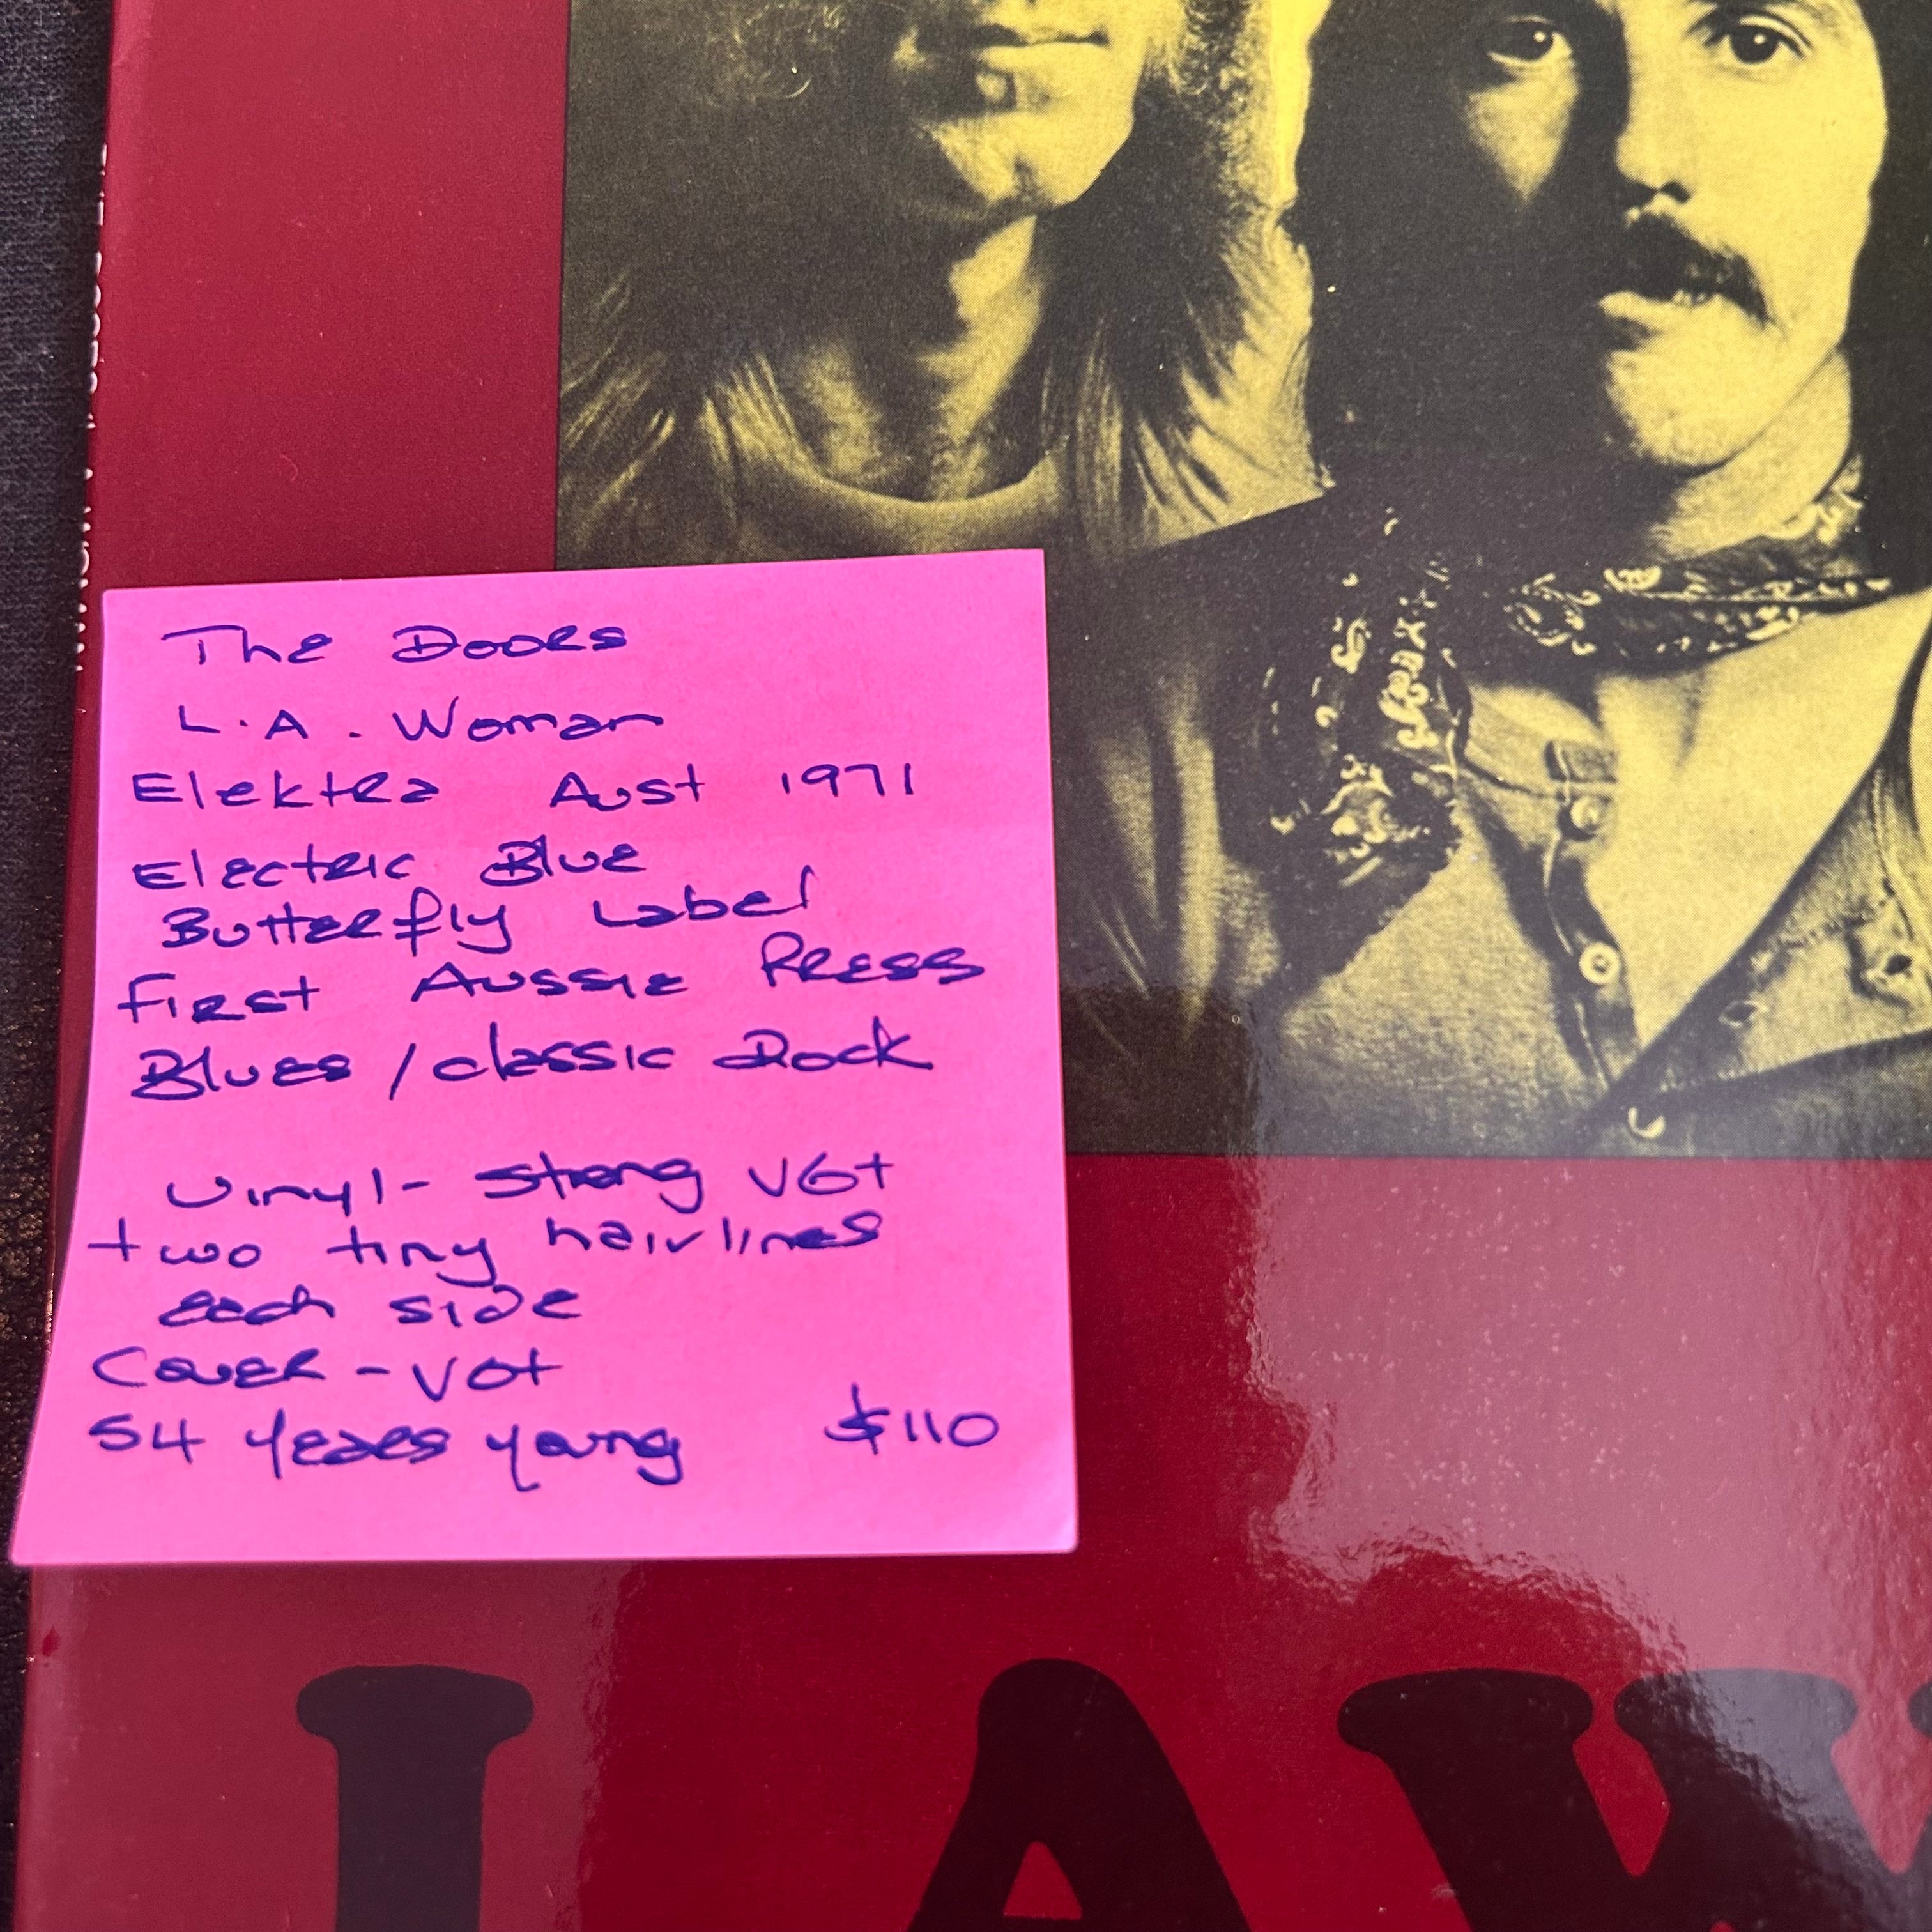 The Doors
L.A. Woman
Elektra Aust 1971
Electric Blue
Butterfly Label
First Aussie Press
Blues / classic Rock
Vinyl - strong VG+
two tiny hairlines
each side
Cover - VG+
54 years young $110
L A W